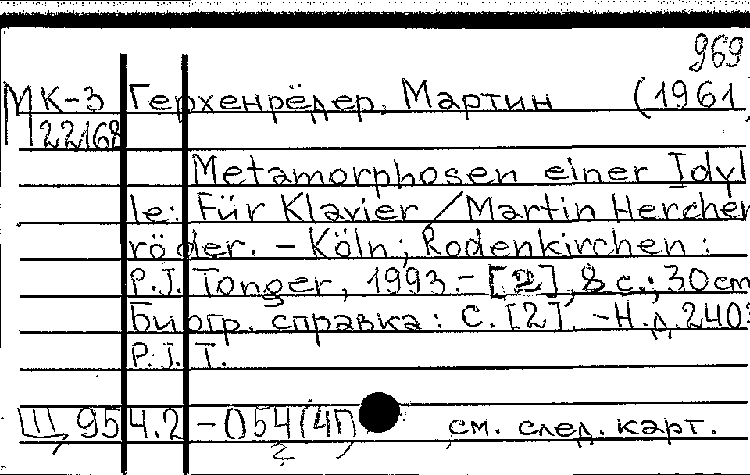 969
МК-3 Герхенрёдер, Мартин (1961
22168
Metamorphosen einer Idyl
le: Für Klavier / Martin Herchen
röder. – Köln; Rodenkirchen:
P.J. Tonger, 1993.– [2], 8 с.; 30cm
Биогр. справка: С. [2]. –Н.д. 2403
P.J.T.
Ш, 954.2 -054(4Г)
2
см. след. карт.